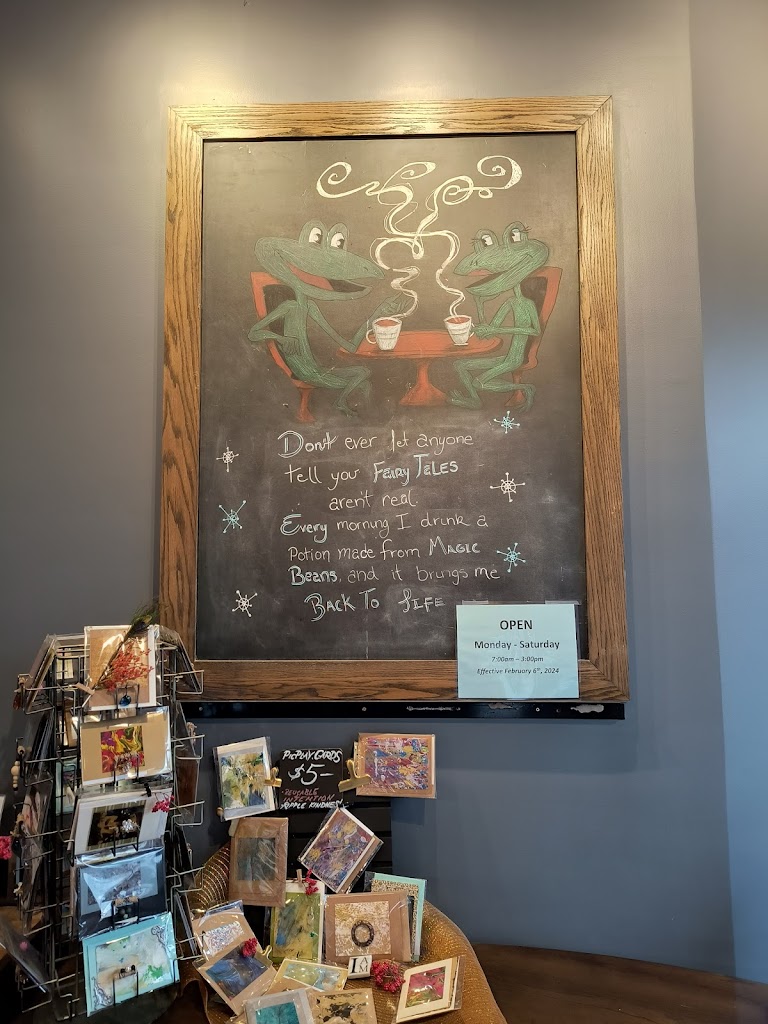 Don't ever let anyone
tell you FAIRY TALES
aren't real.
Every morning I drink a
Potion made from MAGIC
Beans, and it brings me
BACK TO LIFE
OPEN
Monday - Saturday
7:00am – 3:00pm
Effective February 6th, 2024
$5-